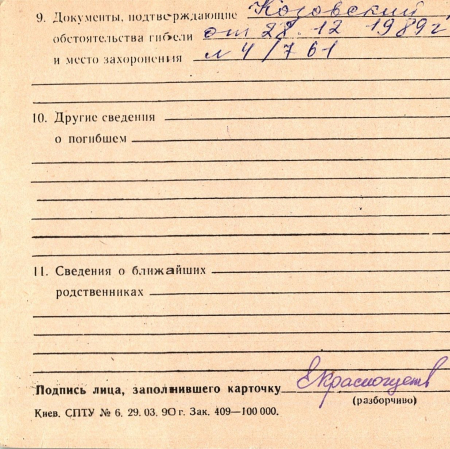 9. Документы, подтверждающие Козовский
обстоятельства гибели от 28.12 1989г
и место захоронения № 4/761
10. Другие сведения
о погибшем
11. Сведения о ближайших
родственниках
Подпись лица, заполнившего карточку
(разборчиво)
Киев. СПТУ № 6. 29. 03. 90 г. Зак. 409—100 000.